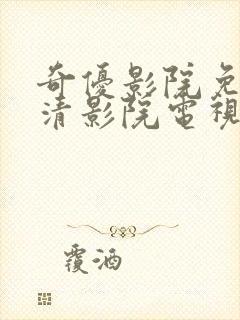 奇優影院免
清影院電視
覆酒